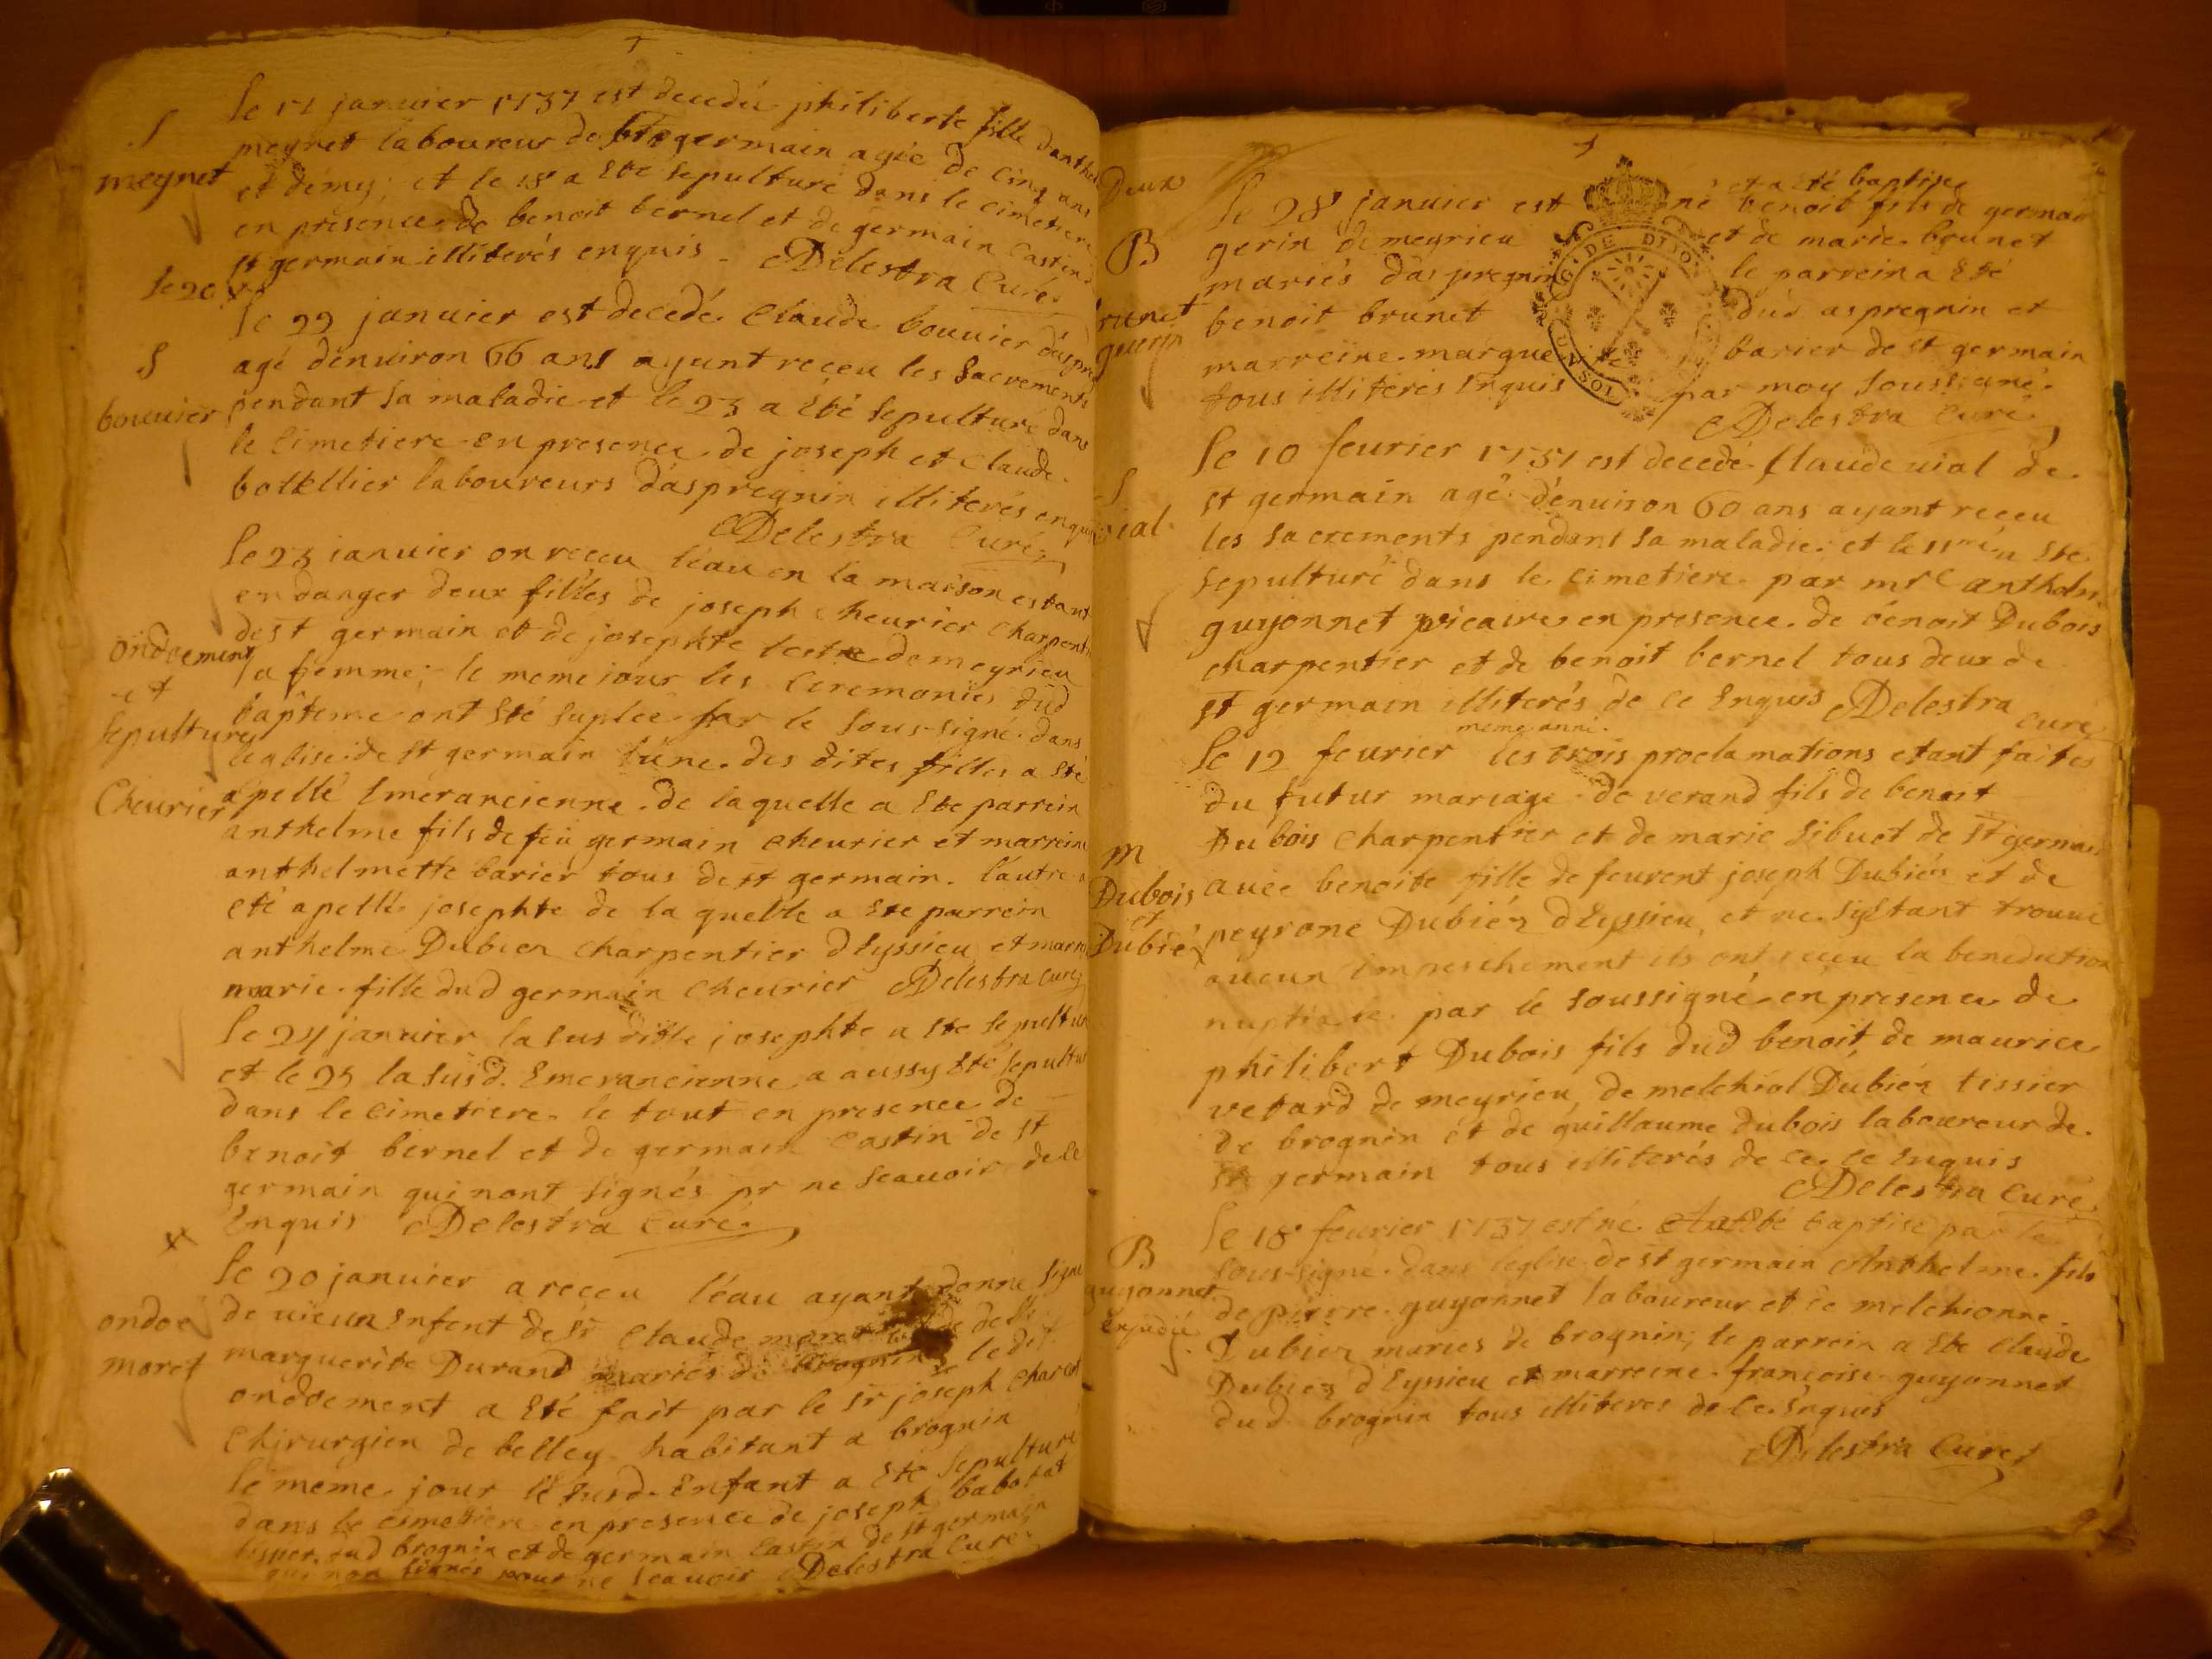 S
meynet
le 20 x
S
bouuier
ondoement
et
sepultures
Cheurier
x
ondoé
moret
le 17 januier 1737 est decedée philiberte fille danthel
meynet laboureur de st germain agée de cinq ans
et demy; et le 18 a eté sepulturé dans le cimetiere
en présence de benoit bernel et de germain Castin d
st germain illiterés enquis - Delestra Curé
le 22 januier est decedé Claude bouuier daspre
agé denuiron 66 ans ayant receu les Sacréments
pendant sa maladie et le 23 a eté sepulturé dans
le cimetiere en presence de joseph et Claude
laboureurs daspregnin illiterés enquis
Delestra Curé
le 23 ianuier on receu léau en la maison estant
en danger deux filles de joseph Cheurier Charpenti
de st germain et de josephte de meyrieu
sa femme; le meme jour les Ceremonies dud
bapteme ont eté suplée par le sous-signé dans
leglise de st germain l'une des dites filles a eté
apellé Emérancienne de laquelle a Ete parrein
anthelme fils de feu germain Cheurier et marreine
anthelmette barier tous de st germain. l'autre a
eté apellé josephte de la quelle a ete parrein
anthelme Dubiez Charpentier dEyssieu et marre
marie fille dud germain Cheurier Delestra curé
le 24 januier la susditte josephte a ete sepultur
et le 25 la susd. Emerancienne a aussy eté sepultur
dans le cimetiere le tout en presence de
benoit bernel et de germain Castin de st
germain qui nont signés pr ne Scauoir de ce
Enquis Delestra Curé
le 20 januier a receu léau ayant donné signe
de uie un Enfent de Sr Claude moret et de delle
marguerite Durand mariés de brognin le dit
ondoement a eté fait par le Sr joseph
Chirurgien de belley habitant a brognin
le meme jour le susd. Enfant a Eté sepulturé
dans le cimetiere en presence de joseph babolat
dud brognin et de germain Castin de st germain
qui non signés pour ne scauoir Delestra Curé
Deux
B
brunet
guerin
S
uial
m
Dubois
et
Dubiéz
B
guyonnet
et a eté baptisé
le 28 januier est né benoit fils de germain
gerin de meyrieu et de marie brunet
mariés d'aspregnin le parrein a Eté
benoit brunet dud aspregnin et
marreine marguerite barier de st germain
tous illiterés Enquis par moy soussigné
Delestra Curé
GE. DE DIJON
UN SOL
le 10 feurier 1737 est decedé Claude uial de
st germain agé denuiron 60 ans ayant receu
les sacrements pendant sa maladie et le 11me a Ete
sepulturé dans le cimetiere par mre anthelm
guyonnet uicaire en presence de bénoit Dubois
charpentier et de benoit bernel tous deux de
st germain illiterés de ce Enquis Delestra curé
meme année
le 12 feurier les trois proclamations etant faites
du futur mariage de uerand fils de benoit
Dubois Charpentier et de marie Sibuet de st germain
auec benoite fille de feurent joseph Dubiéz et de
peyrone Dubiéz dEyssieu, et ne sy etant trouué
aucun impeschement ils ont receu la benediction
nuptiale par le soussigné en presence de
philibert Dubois fils dud benoit, de maurice
uetard de meyrieu, de melchiol Dubiéz tissier
de brognin et de guillaume dubois laboureur de
st germain tous illiterés de ce Enquis
Delestra Curé
le 18 feurier 1737 est né et a eté baptisé par le
sous-signé dans leglise de st germain Anthelme fils
de pierre guyonnet laboureur et de melchionne
Dubiez mariés de brognin; le parrein a Ete Claude
Dubiez dEyssieu et marreine françoise guyonnet
dud brognin tous illiteres de ce Enquis
Delestra Curé